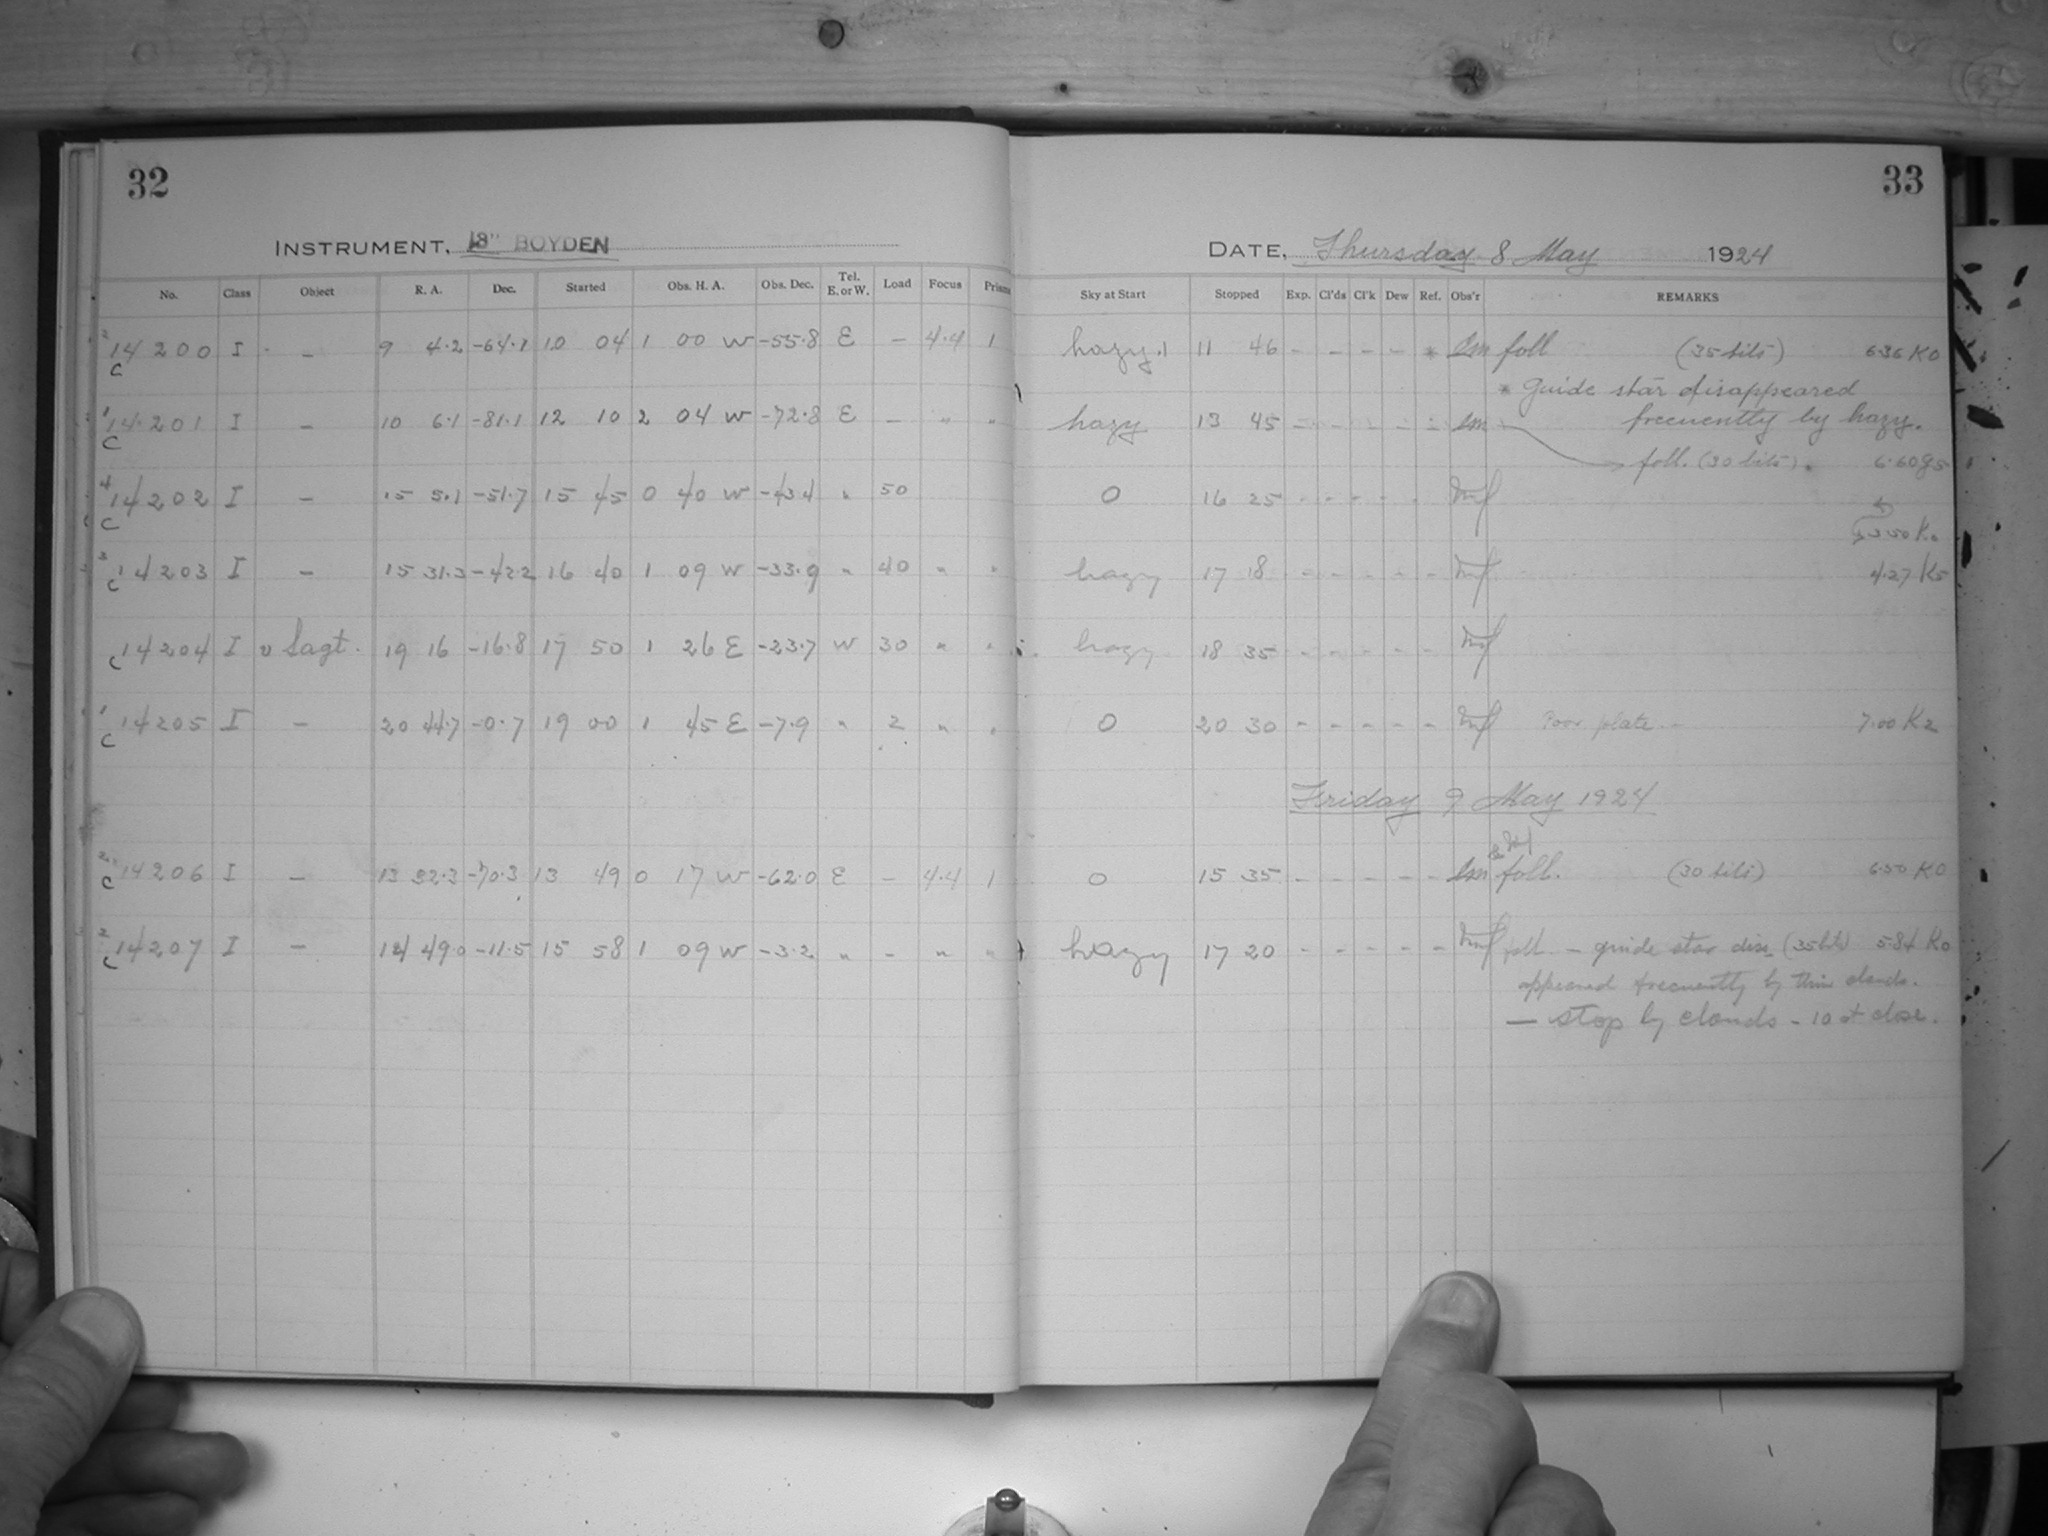 32
33
INSTRUMENT. 13" BOYDEN
DATE, Thursday 8 May 1924
No. Class Object R. A. Dec. Started Obs. H. A. Obs. Dec. Tel. E. or W. Load Focus Prism
Sky at Start Stopped Exp. Cl'ds Cl'k Dew Ref. Obs'r REMARKS
2 14200 I - 9 4.2 -64.1 10 04 1 00 W -55.8 E - 4.4 1 hazy 11 46 - - - - * foll (35 bits) 6.36 K0
C
* Guide star disappeared
1 14201 I - 10 6.1 -81.1 12 10 2 04 W -72.8 E - " " hazy 13 45 - - - - - frecuently by hazy.
C
foll. (30 bits). 6.60 g5
4 14202 I - 15 5.1 -51.7 15 45 0 40 W -43.4 " 50 0 16 25 - - - - -
C
3.50 K0
3 14203 I - 15 31.3 -42.2 16 40 1 09 W -33.9 " 40 " " hazy 17 18 - - - - - 4.27 K5
C
C 14204 I υ Sagt. 19 16 -16.8 17 50 1 26 E -23.7 W 30 " " hazy 18 35 - - - - -
1 14205 I - 20 44.7 -0.7 19 00 1 45 E -7.9 " 2 " " 0 20 30 - - - - - Poor plate - 7.00 K2
C
Friday 9 May 1924
2 14206 I - 13 32.3 -70.3 13 49 0 17 W -62.0 E - 4.4 1 0 15 35 - - - - - foll. (30 bits) 6.50 K0
C
2 14207 I - 14 49.0 -11.5 15 58 1 09 W -3.2 " - " " hazy 17 20 - - - - - foll. - guide star dis (35 bits) 5.84 K0
C
appeared frecuently by thin clouds.
- stop by clouds - 10 at close.